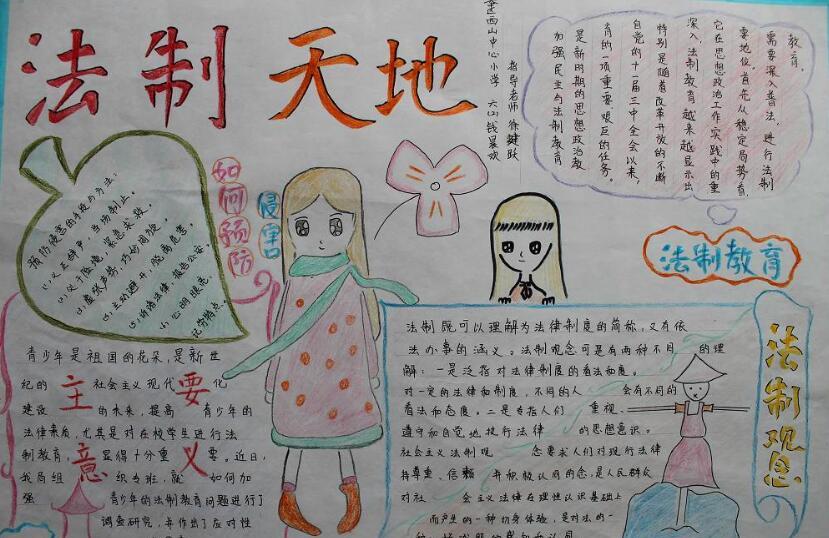 法制天地
奎西山中心小学 六(2)钱晨欢
指导老师 徐建跃
教育，
需要深入普法，进行法制
要地位，首先从稳定局势看，
它在思想政治工作实践中的重
深入，法制教育越来越显示出
特别是随着改革开放的不断
自党的十一届三中全会以来，
育的一项重要艰巨的任务。
是新时期的思想政治教
加强民主与法制教育
法制教育
如何预防
侵害
预防侵害的手段与方法：
(1)义正辞严，当场制止。
(2)处于险境，紧急求救。
(3)虚张声势，巧妙周旋。
(4)主动避开，脱离危害
(5)诉诸法律，报告公安。
(6)心明眼亮，
记劳特点。
青少年是祖国的花朵，是新世
纪的主要 社会主义现代化
建设 的未来，提高 青少年的
法律素质，尤其是对在校学生进行法
制教育，意义 显得十分重要。近日，
我局组 织专班，就 如何加
强 青少年的法制教育问题进行了
调查研究，并作出了应对性
法制观念
法制既可以理解为法律制度的简称，又有依
法办事的涵义。法制观念可是有两种不同 的理
解：一是泛指对法律制度的看法和态度。
对一定的法律和制度，不同的人 会有不同的
看法和态度。二是专指人们 重视、
遵守和自觉地执行法律 的思想意识。
社会主义法制观 念要求人们对现行法律
持尊重、信赖 并积极认同的念，是人民群众
对社 会主义法律在理性认识基础上
而产生的一种切身体验，是对法的一